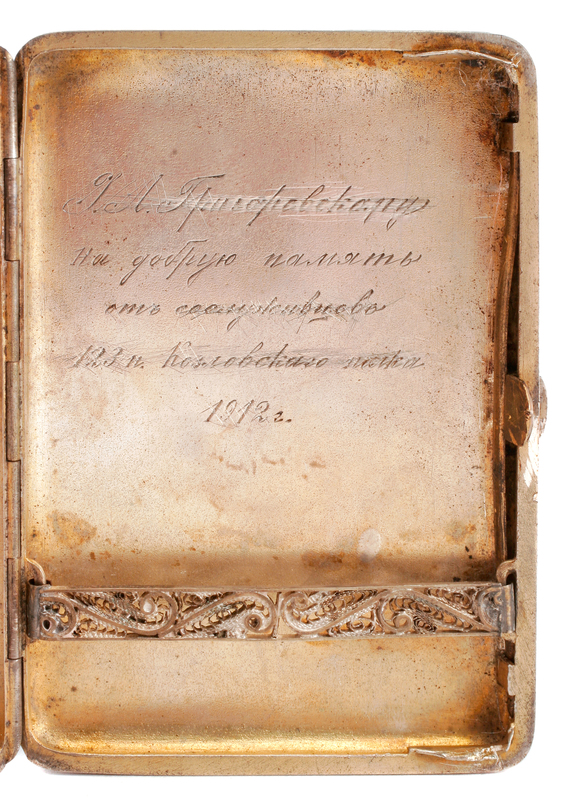 Г. А. Григоревскому
На добрую память
отъ сослуживцовъ
123 п. Козловскаго полка
1912 г.